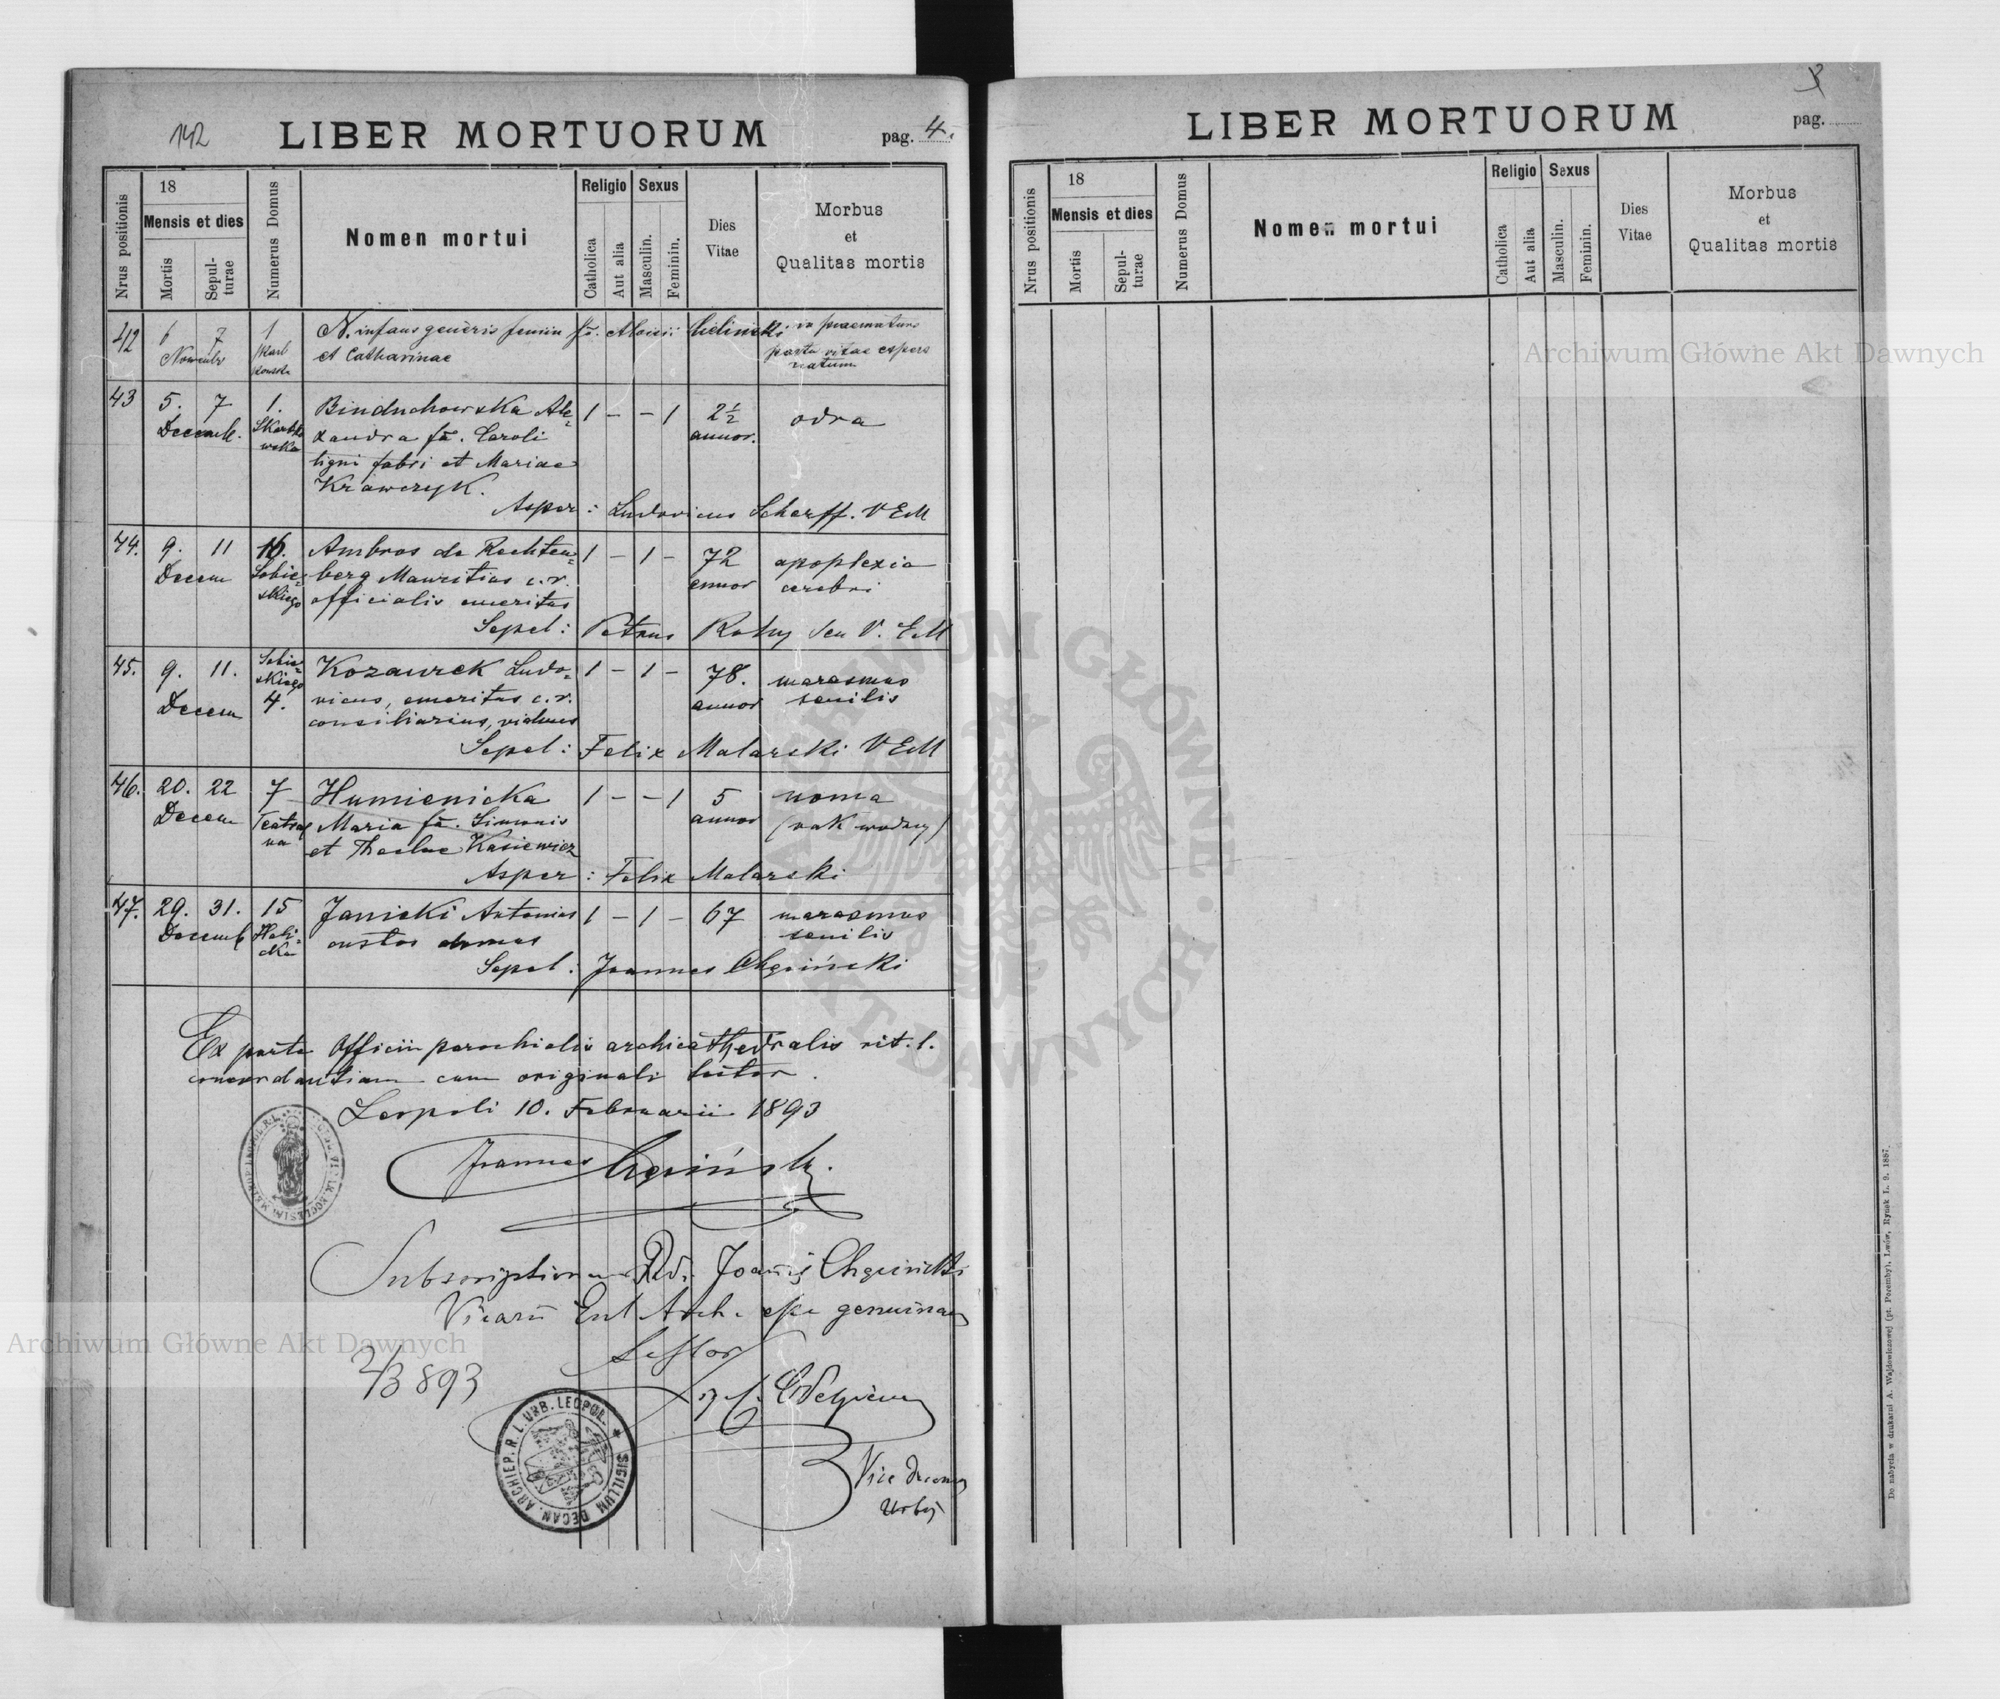 142
LIBER MORTUORUM
pag. 4.
Nrus positionis
18
Mensis et dies
Mortis
Sepul-
turae
Numerus Domus
Nomen mortui
Religio
Catholica
Aut alia
Sexus
Masculin.
Feminin.
Dies
Vitae
Morbus
et
Qualitas mortis
42 6 7 1 N. infans generis femin fa. Aloisii
Novembr et Catharinae
in praematuro
partu vitae expers
natum
43 5. 7 1. Binduchowska Ale= 1 – – 1 2½ odra
Decemb. xandra fa. Caroli annor.
ligni fabri et Mariae
Krawczyk.
Asper: Ludovicus Scherff. VEM
44. 9. 11 16. Ambros de Rechten= 1 – 1 – 72 apoplexia
Decem Sobie= berg Mauritius c. r. annor cerebri
skiego officialis emeritus
Sepel: Petrus V. EM
45. 9. 11. Sobie= Kozaurek Ludo= 1 – 1 – 78. marasmus
Decem skiego vicus, emeritus c. r. annor senilis
4. consiliarius, viduus
Sepel: Felix Malarski VEM
46. 20. 22 7 Humienicka 1 – – 1 5 noma
Decem Teatral Maria fa. Simonis annor (rak wodny)
na et Theclae Kasiewicz
Asper: Felix Malarski
47. 29. 31. 15 Janicki Antonius 1 – 1 – 67 marasmus
Decemb Hali= custos domus senilis
cka
Sepel: Joannes Chęciński
Ex parte Officii parochialis archicathedralis rit. l.
concordantiam cum originali testor.
Leopoli 10. Februarii 1893
Joannes Chęciński.
Subscriptionem Rvdi Joannis Chęciński
Vicarii Eccl Arch. esse genuinam
testor
2/3 893
Vice decanus
Urbis
ARCHIEP. R. L. URB. LEOPOL. * SIGILLUM DECAN.
Archiwum Główne Akt Dawnych
ARCHIWUM GŁÓWNE AKT DAWNYCH
LIBER MORTUORUM
pag.
Nrus positionis
18
Mensis et dies
Mortis
Sepul-
turae
Numerus Domus
Nomen mortui
Religio
Catholica
Aut alia
Sexus
Masculin.
Feminin.
Dies
Vitae
Morbus
et
Qualitas mortis
Archiwum Główne Akt Dawnych
Do nabycia w drukarni A. Wajdowiczowej (pt. Poremby), Lwów, Rynek L. 9. 1887.